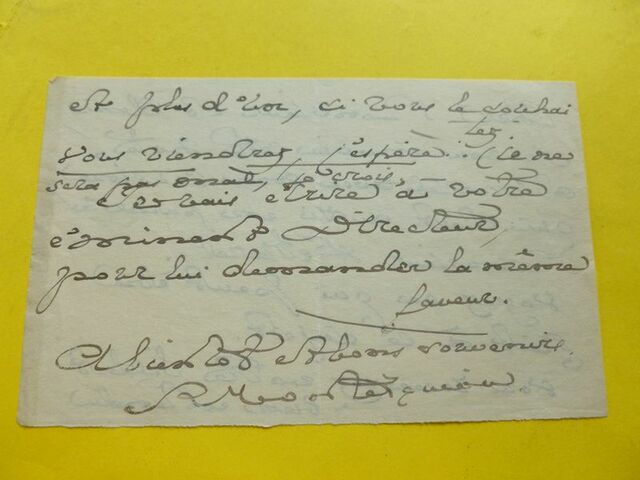 et plus d'or, si vous le souhai
tez.
vous viendrez, j'espère.. (ce ne
sera pas mal, je crois,
Je vais écrire à votre
éminent Directeur,
pour lui demander la même
faveur.
A bientôt et bons souvenirs.
R Montesquiou